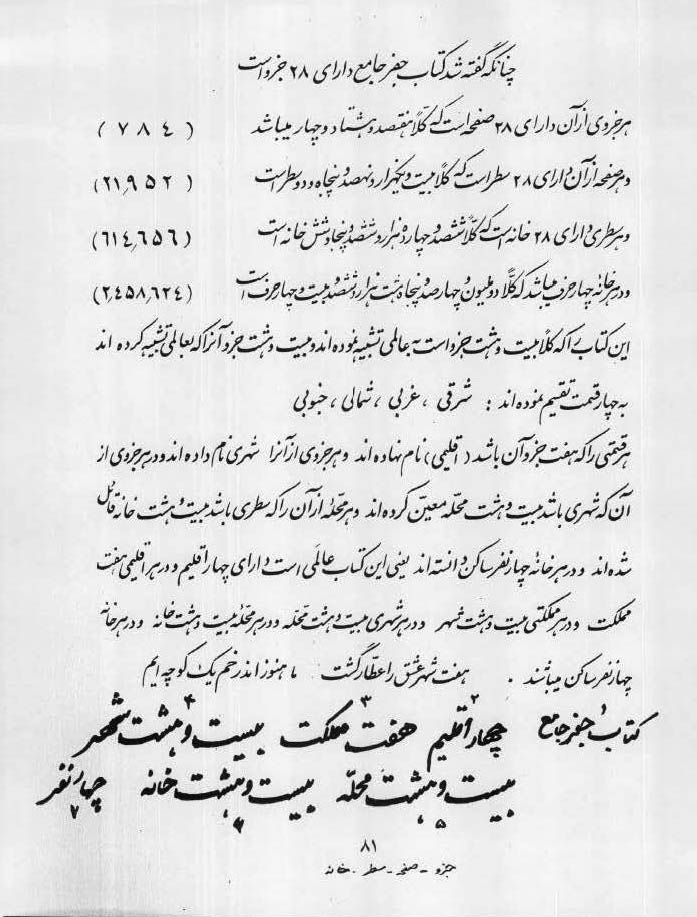 چنانکه گفته شد کتاب جفر جامع دارای ۲۸ جزو است
هر جزوی از آن دارای ۲۸ صفحه است که کلاً هفتصد و هشتاد و چهار میباشد (۷۸٤)
و هر صفحه از آن دارای ۲۸ سطر است که کلاً بیست و یکهزار و نهصد و پنجاه و دو سطر است (۲۱,۹۵۲)
و هر سطری دارای ۲۸ خانه است که کلاً ششصد و چهارده هزار و ششصد و پنجاه و شش خانه است (٦۱٤,٦۵٦)
و در هر خانه چهار حرف میباشد که کلاً دو ملیون و چهارصد و پنجاه هشت هزار و ششصد و بیست و چهار حرف است (۲,٤۵۸,٦۲٤)
این کتاب را که کلاً بیست و هشت جزو است به عالمی تشبیه نموده اند و بیست و هشت جزو آنرا که بعالمی تشبیه کرده اند
به چهار قسمت تقسیم نموده اند : شرقی ، غربی ، شمالی ، جنوبی
هر قسمتی را که هفت جزو آن باشد (اقلیمی) نام نهاده اند و هر جزوی از آنرا شهری نام داده اند و در هر جزوی از
آن که شهری باشد بیست و هشت محلّه معیّن کرده اند و هر محلّهٔ از آن را که سطری باشد بیست و هشت خانه قائل
شده اند و در هر خانهٔ چهار نفر ساکن دانسته اند یعنی این کتاب عالمی است دارای چهار اقلیم و در هر اقلیمی هفت
مملکت و در هر مملکتی بیست و هشت شهر و در هر شهری بیست و هشت محلّه و در هر محلّه بیست و هشت خانه و در هر خانه
چهار نفر ساکن میباشند . هفت شهر عشق را عطار گشت ما هنوز اندر خم یک کوچه ایم
کتاب جفر جامع ۱ چهار اقلیم ۲ هفت مملکت ۳ بیست و هشت شهر ۴
بیست و هشت محلّه ۵ بیست و هشت خانه ۶ چهار نفر ۷
۸۱
جزو - صفحه - سطر - خانه